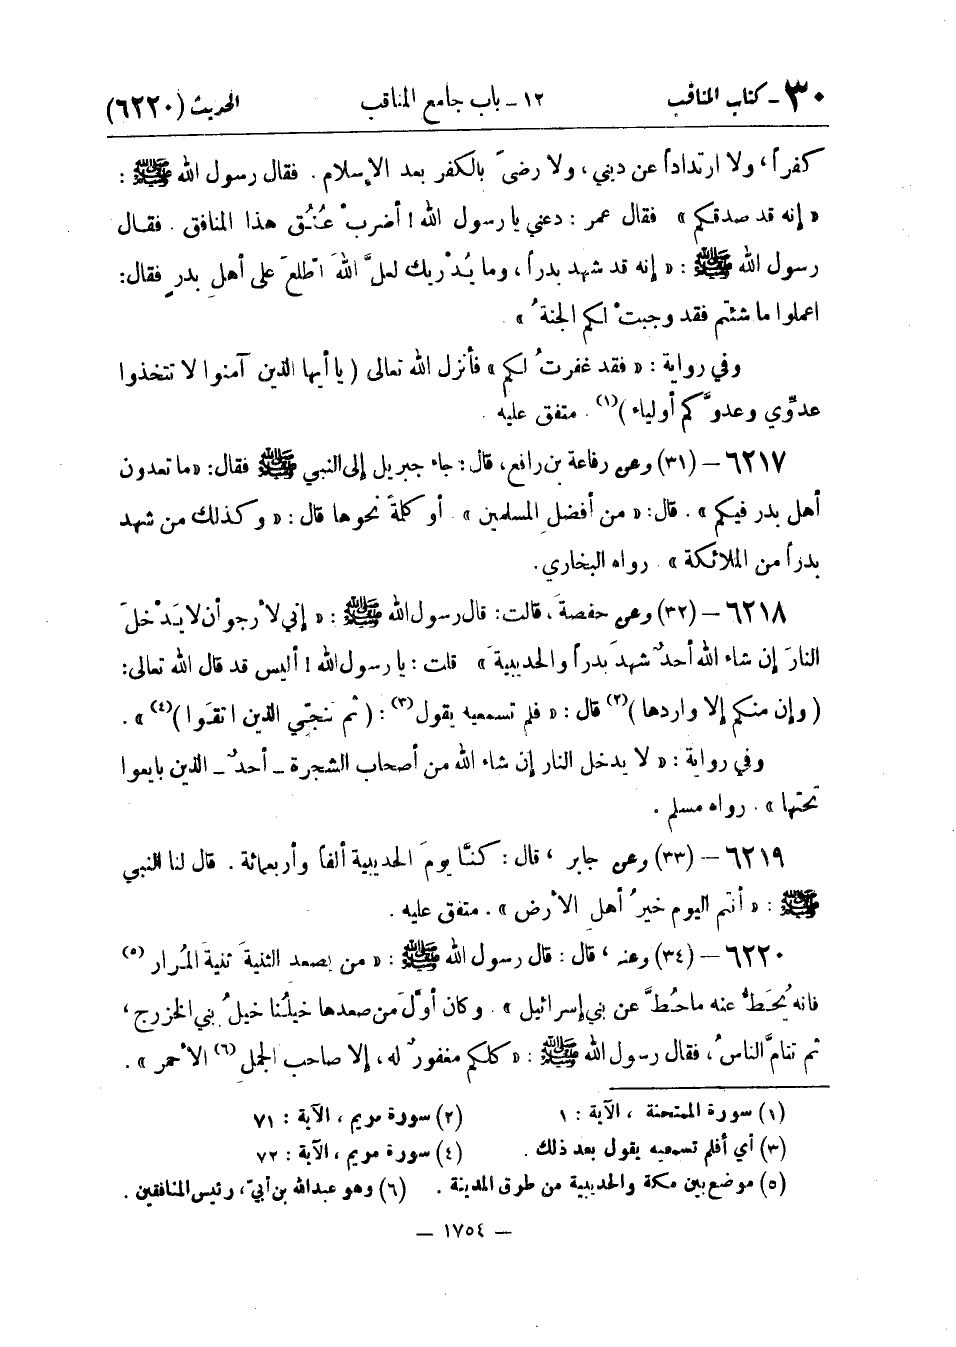 ٣٠ - كتاب المناقب ١٢ - باب جامع المناقب الحديث (٦٢٢٠)
كفراً، ولا ارتداداً عن ديني، ولا رضىً بالكفر بعد الإسلام. فقال رسول الله ﷺ :
« إنه قد صدقكم » فقال عمر : دعني يا رسول الله ! أضربْ عُنُق هذا المنافق . فقال
رسول الله ﷺ : « إنه قد شهد بدراً ، وما يُدْريك لعلَّ اللهَ اطّلعَ على أهلِ بدرٍ فقال:
اعملوا ما شئتم فقد وجبتْ لكم الجنةُ » .
وفي رواية : « فقد غفرتُ لكم » فأنزل الله تعالى ( يا أيها الذين آمنوا لا تتخذوا
عدوِّي وعدوَّكم أولياء )(١) . متفق عليه .
٦٢١٧ – (٣١) وعن رفاعة بن رافع، قال: جاء جبريل إلى النبي ﷺ فقال: «ما تعدون
أهل بدر فيكم » . قال: « من أفضلِ المسلمين » . أو كلمةً نحوها قال : « وكذلك من شهد
بدراً من الملائكة » . رواه البخاري.
٦٢١٨ – (٣٢) وعن حفصةَ، قالت: قال رسول الله ﷺ : « إني لأرجو أن لا يَدْخلَ
النارَ إن شاء الله أحدٌ شهدَ بدراً والحديبيةَ » قلت : يا رسول الله ! أليس قد قال الله تعالى:
( وإن منكم إلا واردها )(٢) قال : « فلم تسمعيه يقول(٣) : ( ثم ننجّي الذين اتقَوا )(٤) » .
وفي رواية : « لا يدخل النار إن شاء الله من أصحاب الشجرة ـ أحدٌ ـ الذين بايعوا
تحتها » . رواه مسلم .
٦٢١٩ – (٣٣) وعن جابر ، قال : كنَّا يومَ الحديبية ألفاً وأربعمائة . قال لنا النبي
ﷺ : « أنتم اليوم خيرُ أهلِ الأرض » . متفق عليه .
٦٢٢٠ – (٣٤) وعنه ، قال : قال رسول الله ﷺ : « من يصعد الثنيةَ ثنيةَ المُرار (٥)
فانه يُحَطُّ عنه ما حُطَّ عن بني إسرائيل » . وكان أوّلَ من صعدها خيلُنا خيلُ بني الخزرج ،
ثم تتامَّ الناسُ ، فقال رسول الله ﷺ : « كلكم مغفورٌ له ، إلا صاحب الجملِ (٦) الأحمر » .
(١) سورة الممتحنة ، الآية : ١ (٢) سورة مريم ، الآية : ٧١
(٣) أي أفلم تسمعيه يقول بعد ذلك . (٤) سورة مريم ، الآية : ٧٢
(٥) موضع بين مكة والحديبية من طرق المدينة . (٦) وهو عبدالله بن أبيّ ، رئيس المنافقين .
— ١٧٥٤ —